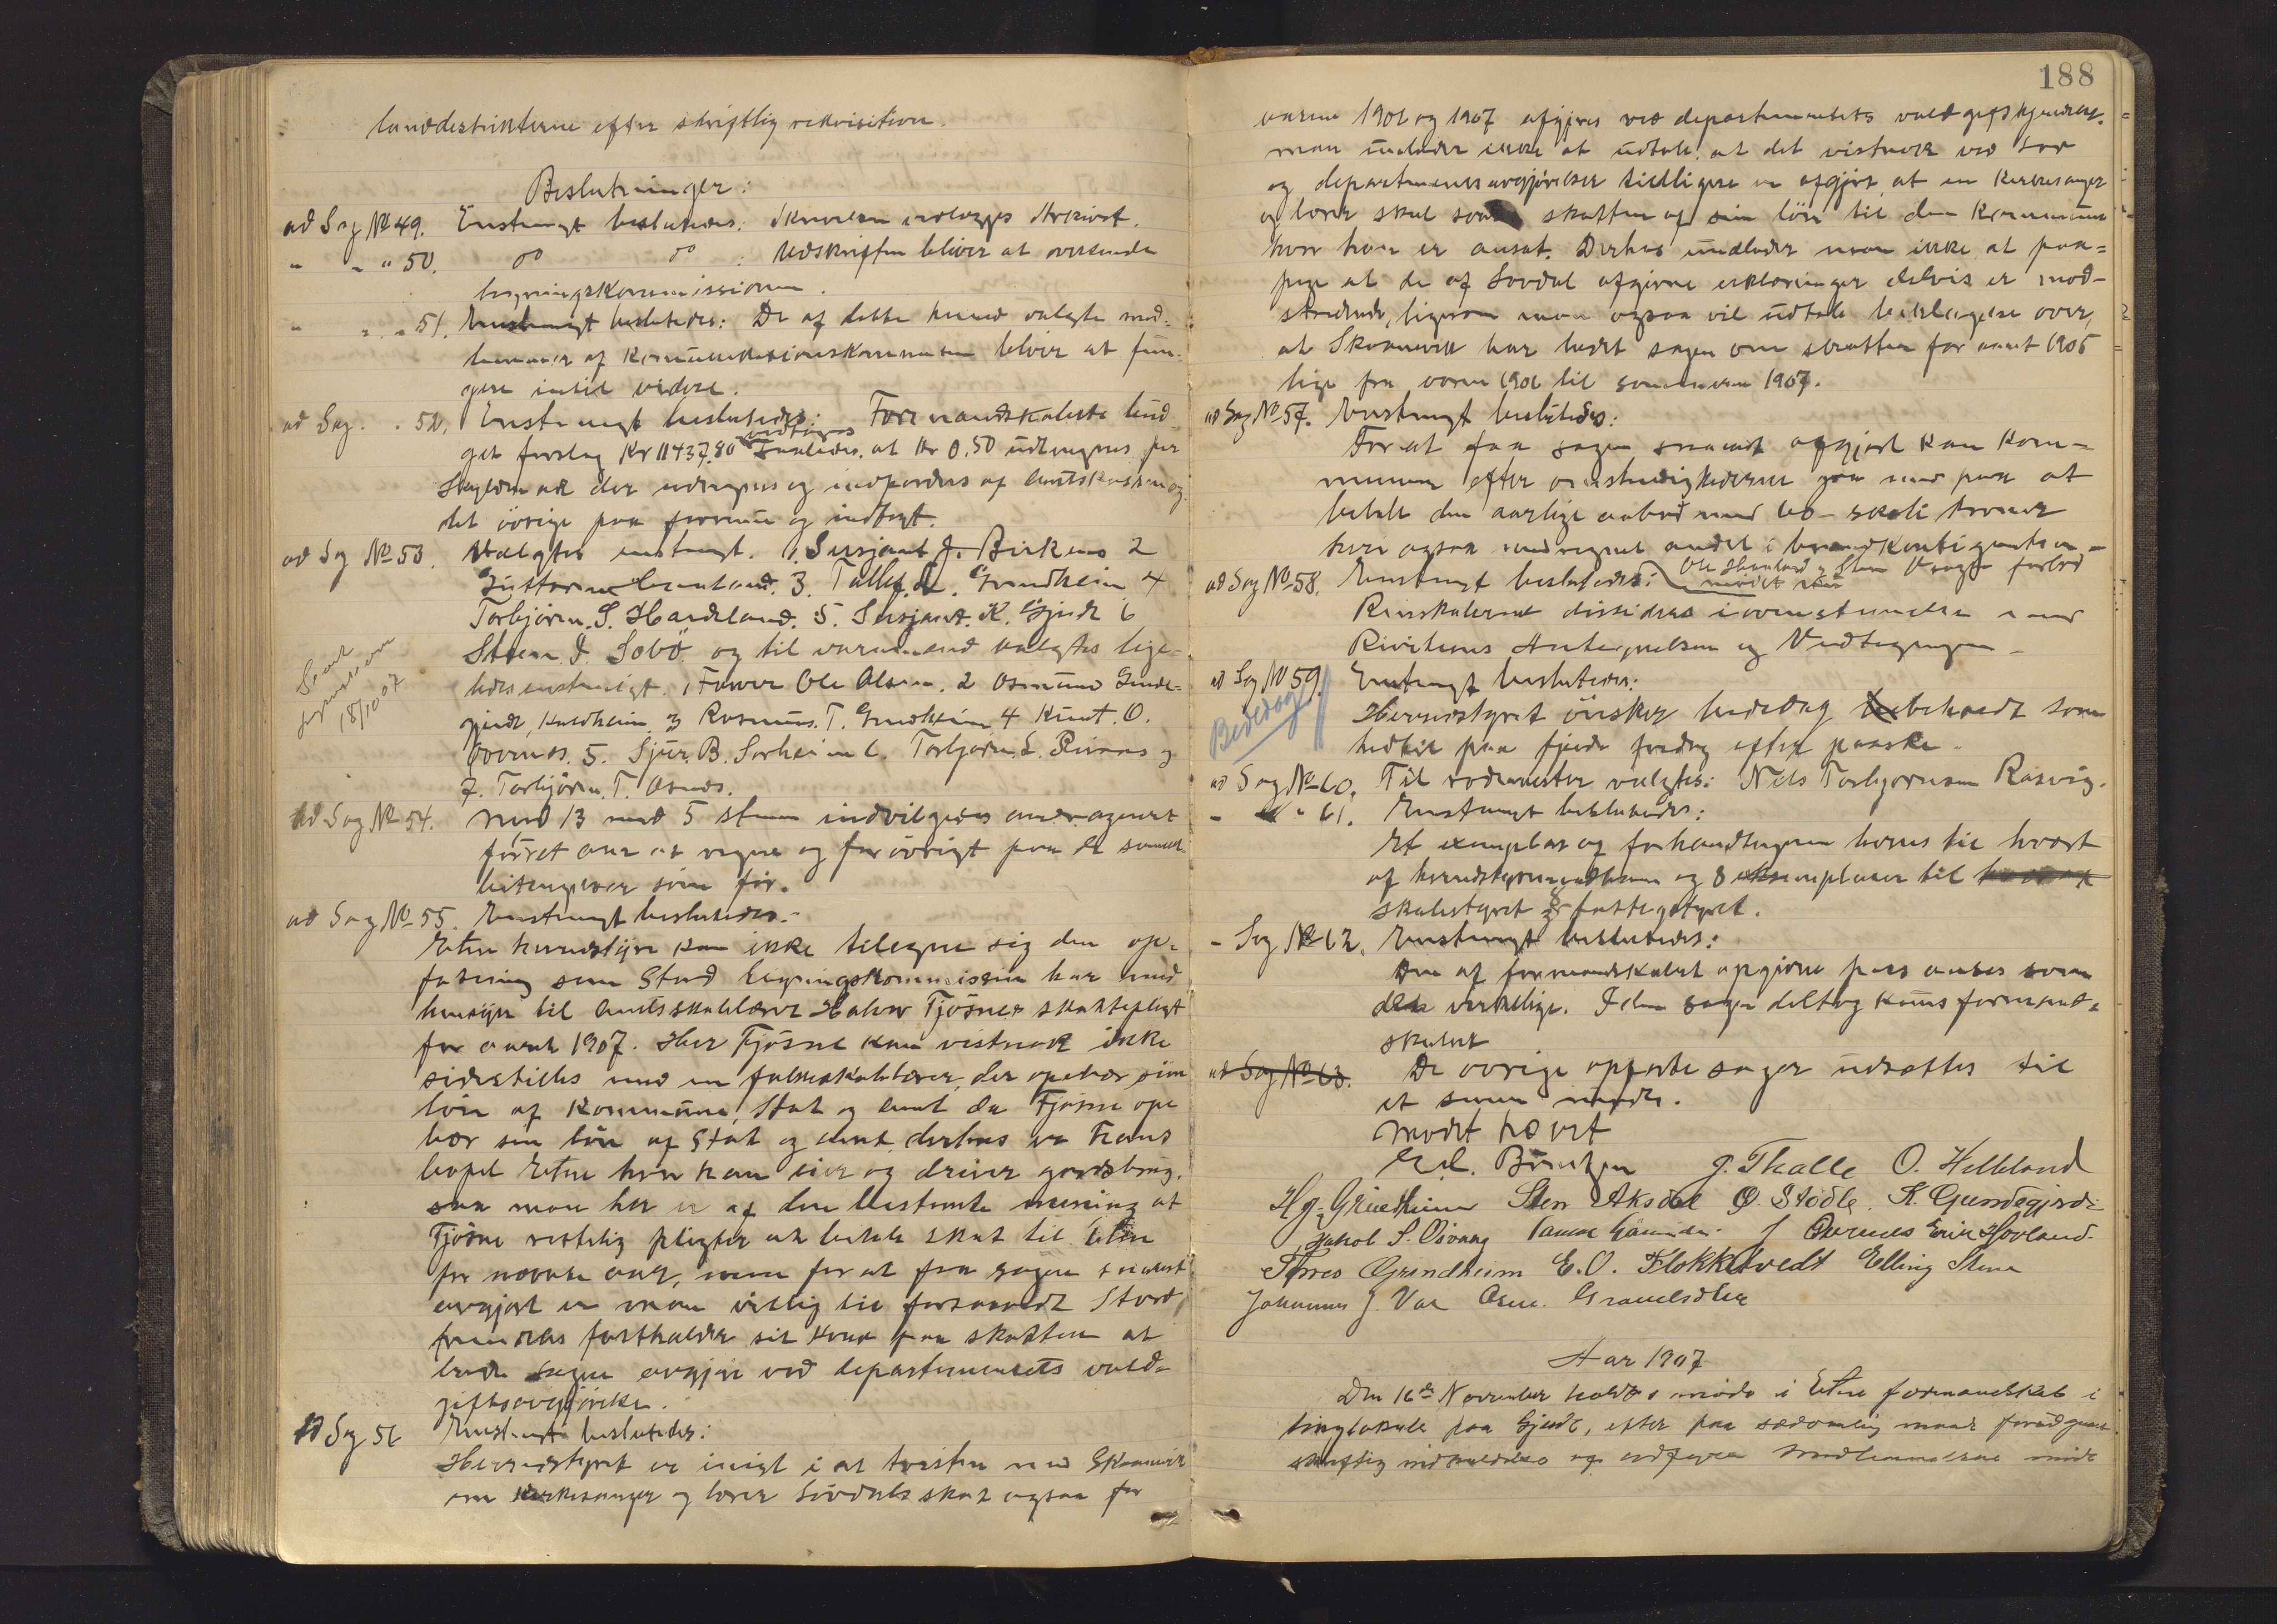 landdistrikterne efter skriftlig rekvisition.
Beslutninger:
ad Sag № 49. Enstemigt besluttedes: Skrivelsen indlægges Arkivet.
" " " 50. do do : Udskriften bliver at oversende
ligningskommissionen.
" " " 51. Enstemigt besluttedes: De af dette herred valgte med-
lemmer af Kommunikationskommissionen bliver at fun-
gere indtil videre.
ad Sag " 52. Enstemigt besluttedes: Formandskabets bud-
get forslag Kr 11437,80 vedtoges saaledes, at Kr 0,50 udlignes per
Skyldmark der udlignes og indfordres af Amtskassen og
det övrige paa formue og indtægt.
ad Sag № 53. Valgtes enstemigt. 1. Sersjant J. Birkenes 2
Guttorm 3. Tallef. L. Grindheim 4
Torbjörn. S. Hardeland. 5. Sersjant. K. Gjerde 6
Steen. J. Sebö og til varamænd valgtes lige-
ledes enstemigt. 1 Farver Ole Olsen. 2 Osmund Gunde-
gjerde, Kaldheim 3 Rasmus. T. Grindheim 4 Knut. O.
Övernes. 5. Sjur. B. Sørheim 6. Torbjørn. L. Rinnes og
7. Torbjörn. T. Osnes.
Sendt
18/10 07
ad Sag № 54. Med 13 mod 5 stemmer indvilgedes andragenet
förret om at regne og forövrigt paa de samme
betingelser som för.
ad Sag № 55. Enstemigt besluttedes:
Etne herredstyre kan ikke tilegne sig den op-
fatning som Stord ligningskommission har med
hensyn til Amtsskolelærer Halvor Fjösnes skattepligt
for aaret 1907. Herr Fjösne kan vistnok ikke
sidestilles med en folkeskolelærer, der opebær sin
lön af Kommune, Stat og amt da Fjösne ope
bær sin lön af Stat og amt, derhos er hans
bopæl Etne hvor han eier og driver gaardsbrug.
saa man her er af den bestemte mening at
Fjösne rettelig pligter at betale skat til Etne
for nævnte aar, men for at faa sagen snarest
avgjort er man villig til forsaavidt Stord
fremdeles fastholder sit krav paa skatten at
lade sagen avgjøre ved departementets vold-
giftsavgjörelse.
ad Sag 56 Enstemigt besluttedes:
Herredstyret er enigt i at tvisten med Skaanevik
om Kirkesanger og lærer Sövdals skat ogsaa for
188
aarene 1906 og 1907 afgjøres ved departementets voldgiftskjendelse.
man undlader ikke at udtale, at det vistnok ved lov
og departementsavgjörelser tidligere er afgjört, at en Kirkesanger
og lærer skal svare skatten af sin lön til den Kommune
hvor han er ansat. Derhos undlader man ikke at paa-
pege at de af Sovdal afgivne erklæringer delvis er mod-
stridende, ligesom man ogsaa vil udtale beklagelse over,
at Skaanevik har heftet sagen om skatten for aaret 1905
lige fra vaaren 1906 til sommeren 1907.
ad Sag № 57. Enstemigt besluttedes:
For at faa sagen snarest afgjort kan Kom-
munen efter omstændighederne gaa med paa at
betale den aarlige aabod med 60 – seksti kroner
heri ogsaa medregnet andel i brandkontigenten. –
ad Sag № 58. Enstemigt besluttedes:
Regnskaberne desideres i overenstemmelse med
Revisions Antegnelsen og Vedtegningen –
ad Sag № 59. Enstemigt besluttedes:
Bededag
Herredstyret önsker bededag beholdt som
hidtil paa fjerde fredag efter paaske.
ad Sag № 60. Til rodemester valgtes: Nels Torbjørnsen Rasvåg.
" " 61. Enstemigt besluttedes:
Et exemplar af forhandlingerne levres til hvert
af herredstyremedlemmerne og 8 eksemplarer til
skolestyret og fattigstyret.
– Sag № 62. Enstemigt besluttedes:
Den af formandskabet opgivne pris anses som
den virkelige. I den sagen deltog kuns formand-
skabet
ad Sag № 63. De øvrige opførte sager udsættes til
et senere møde.
Mødet hævet
J. Thalle O. Helleland
Hg. Grindheim Sten Aksdal O. Stödle. K. Gundegjerde
Jakob S. Osvaag Erik Hovland
Tørres Grindheim E. O. Flokketvedt Elling Stene
Johannes J. Vae
Aar 1907
Den 16de November holdtes møde i Etne formandskab i
tinglokale paa Gjerde, efter paa sædvanlig maade forudgaaet
skriftlig indkaldelse og medlemmerne møde